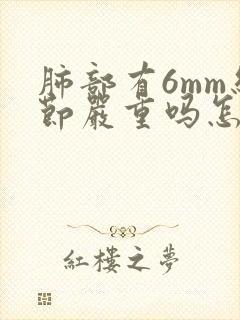 肺部有6mm
節嚴重吗怎
紅樓之夢